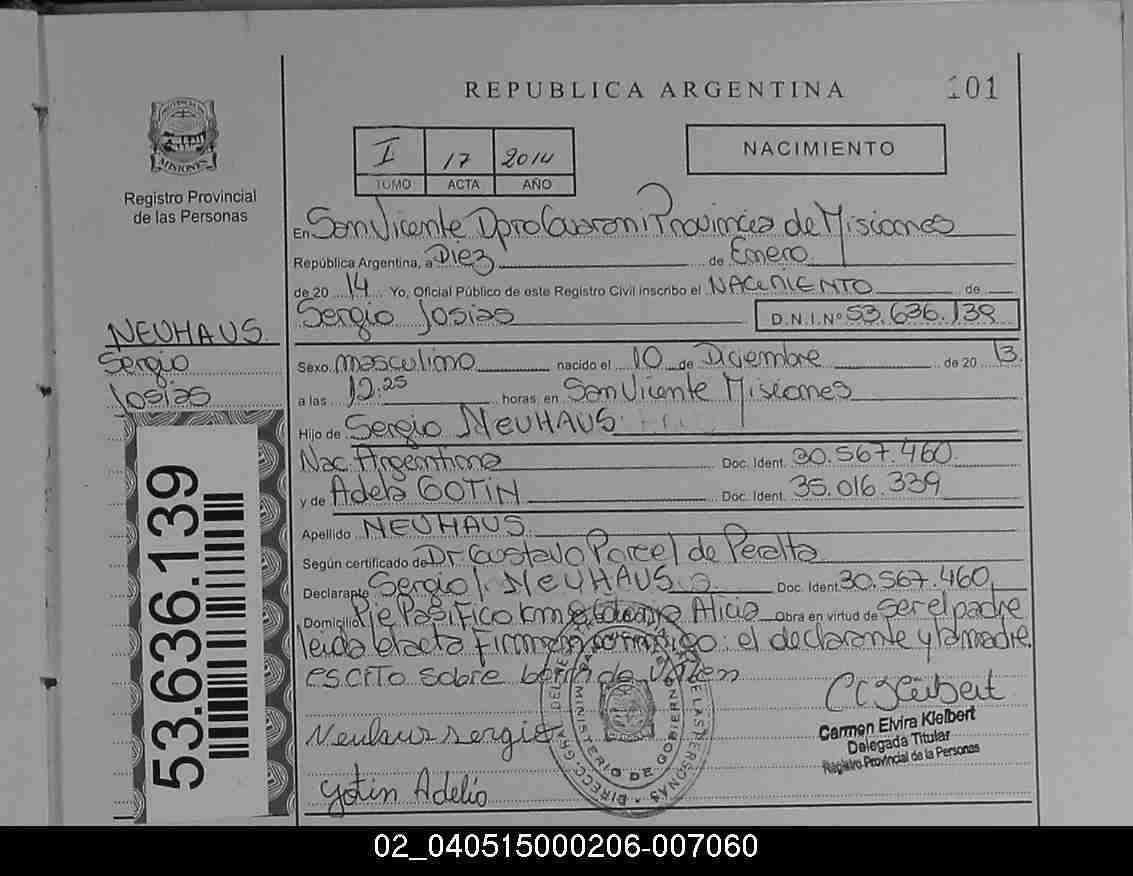 REPUBLICA ARGENTINA
101
PROVINCIA DE MISIONES
Registro Provincial
de las Personas
I 17 2014
TOMO ACTA AÑO
NACIMIENTO
En San Vicente Dpto Guarani Provincia de Misiones
República Argentina, a Diez de Enero
de 20 14 Yo, Oficial Público de este Registro Civil inscribo el NACIMIENTO de
Sergio Josias D.N.I. Nº 53.636.139
NEUHAUS
Sergio
Josias
53.636.139
Sexo masculino nacido el 10 de Diciembre de 20 13
a las 12:25 horas, en San Vicente Misiones
Hijo de Sergio NEUHAUS
Nac. Argentina Doc. Ident. 30.567.460
y de Adela GOTIN Doc. Ident. 35.016.339
Apellido NEUHAUS
Según certificado de Dr Gustavo Porcel de Peralta
Declarante Sergio NEUHAUS Doc. Ident. 30.567.460
Domicilio Pje Pasifico km Alicia Obra en virtud de ser el padre
leida el acta Firman conmigo: el declarante y la madre
escrito sobre
Neuhaus sergio
Gotin Adelia
MINISTERIO DE GOBIERNO
DIRECC. GRAL. DEL REG. DE LAS PERSONAS
Carmen Elvira Kleibert
Delegada Titular
Registro Provincial de la Personas
02_040515000206-007060